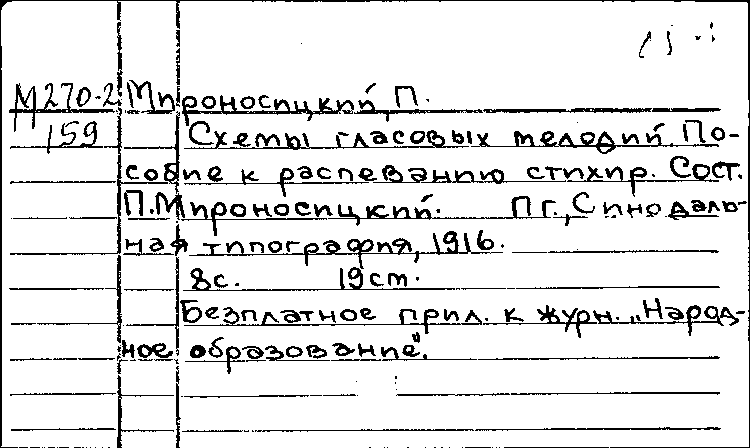 М270-2 Мироносицкий, П.
159 Схемы гласовых мелодий. По-
собие к распеванию стихир. Сост.
П. Мироносицкий. Пг., Синодаль-
ная типография, 1916.
8с. 19см.
Безплатное прил. к журн. „Народ-
ное образование".